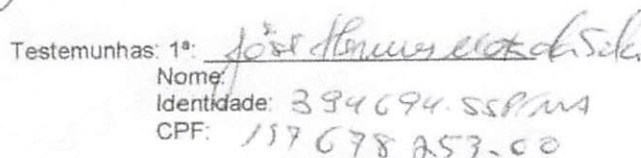 Testemunhas: 1ª: José da Silva
Nome:
Identidade: 394694. SSP/MA
CPF: 197678253-00